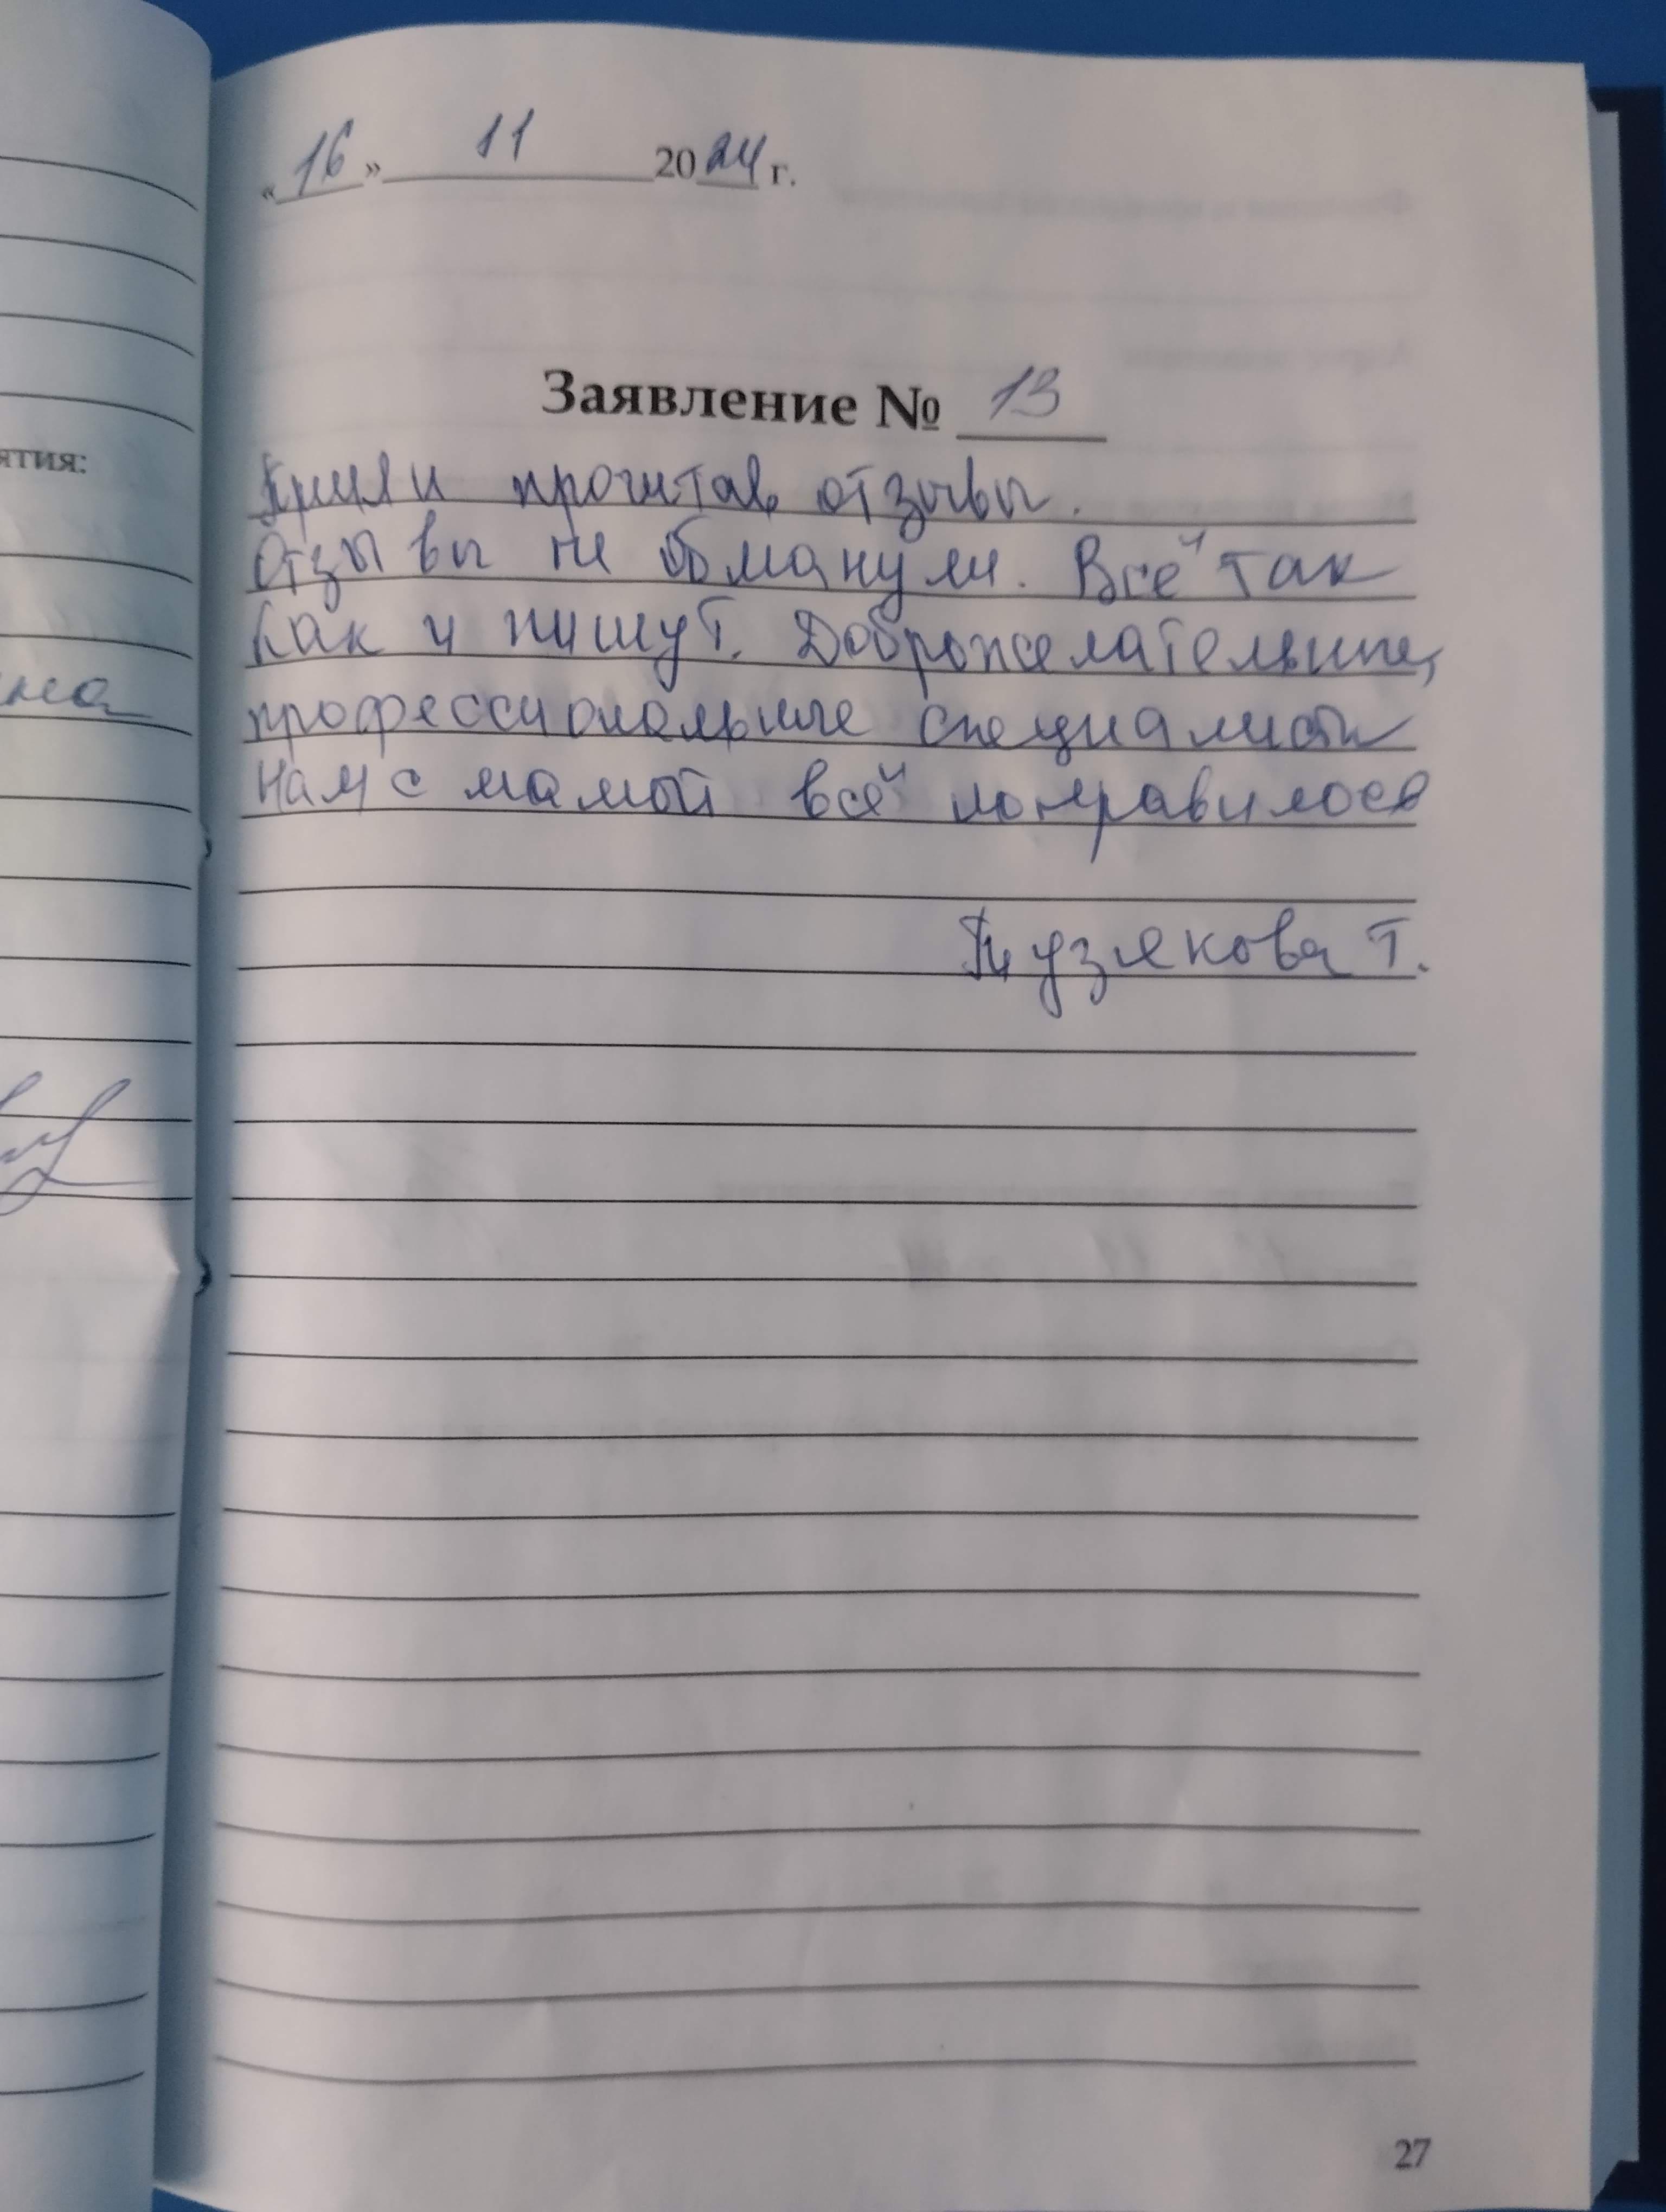 «16» 11 2024 г.
Заявление № 13
ятия:
Пришли прочитав отзывы.
Отзывы не обманули. Всё так
как и пишут. Доброжелательные,
профессиональные специалисты
Нам с мамой всё понравилось
Т.
27